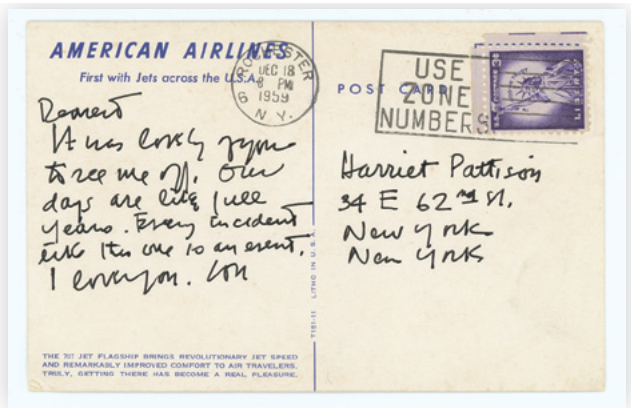 AMERICAN AIRLINES
First with Jets across the U.S.A.
ROCHESTER
DEC 18
8 PM
1959
6
N.Y.
POST CARD
USE
ZONE
NUMBERS
3¢
LIBERTY
Dearest
It was lovely of you
to see me off. Our
days are like full
years. Every incident
like this one is an event.
I love you. Lou
Harriet Pattison
34 E 62nd St.
New York
New York
T151-11 LITHO IN U.S.A.
THE 707 JET FLAGSHIP BRINGS REVOLUTIONARY JET SPEED
AND REMARKABLY IMPROVED COMFORT TO AIR TRAVELERS.
TRULY, GETTING THERE HAS BECOME A REAL PLEASURE.